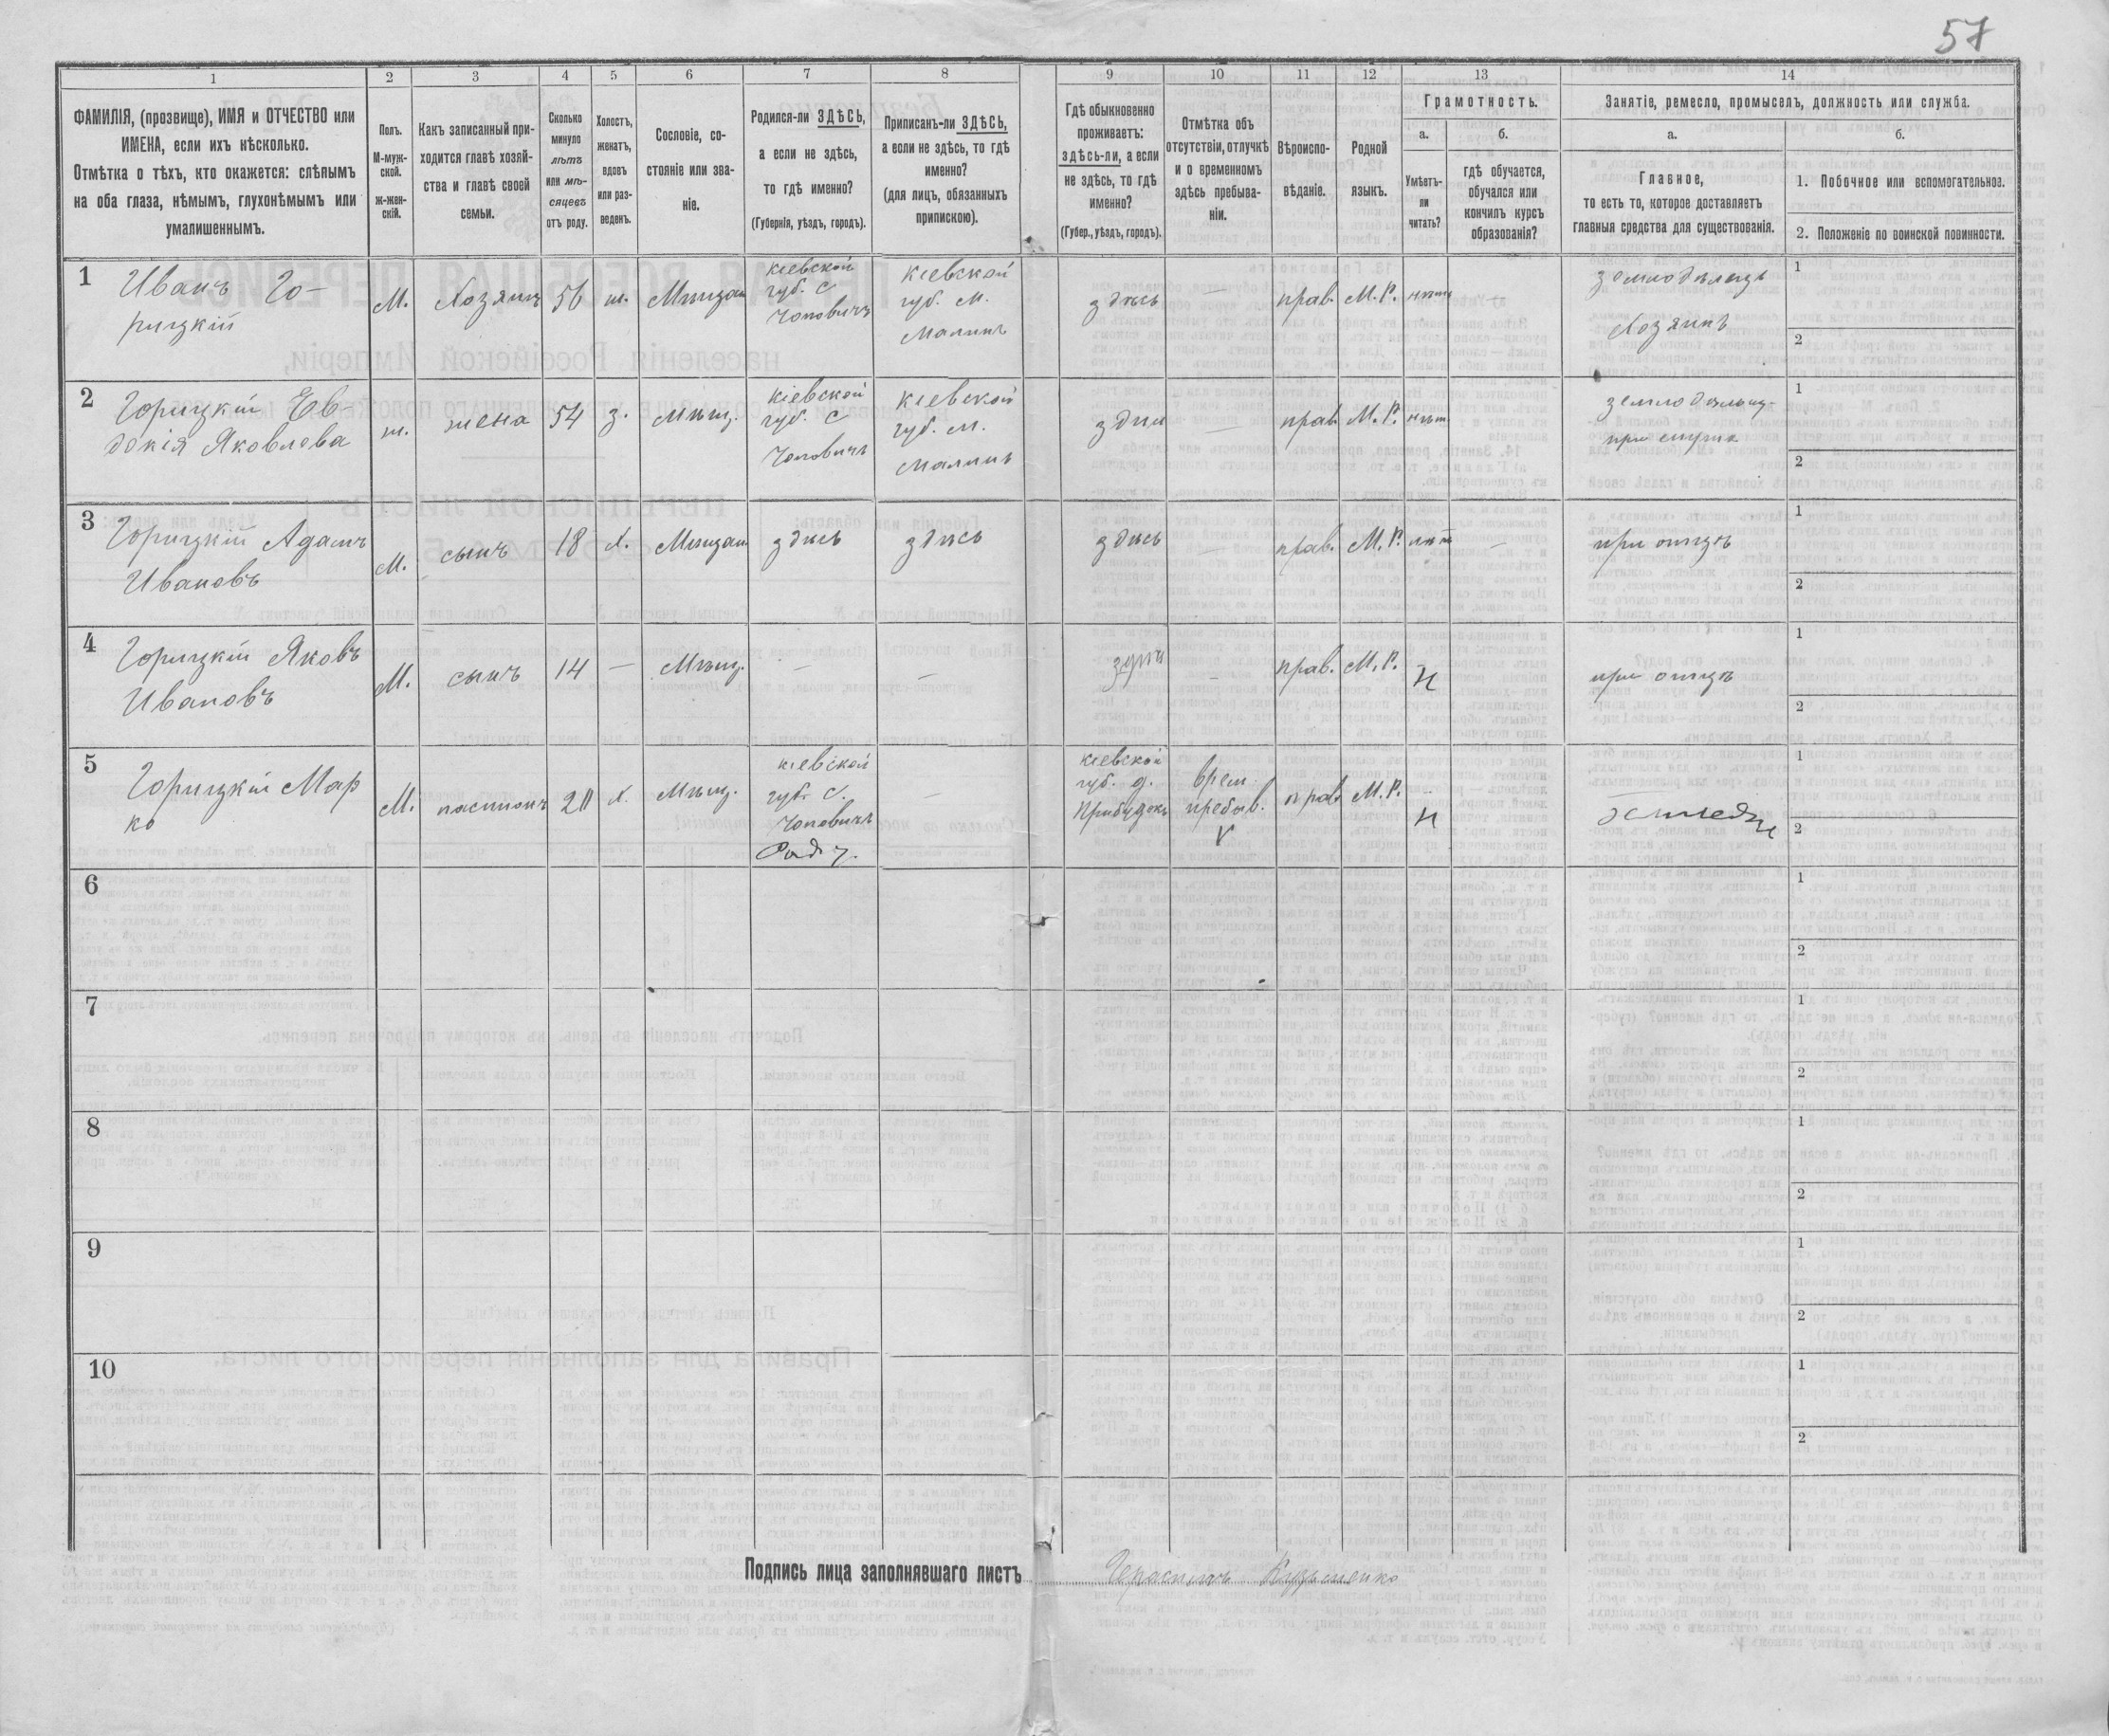 57
1 2 3 4 5 6 7 8 9 10 11 12 13 14
ФАМИЛІЯ, (прозвище), ИМЯ и ОТЧЕСТВО или
ИМЕНА, если ихъ нѣсколько.
Отмѣтка о тѣхъ, кто окажется: слѣпымъ
на оба глаза, нѣмымъ, глухонѣмымъ или
умалишеннымъ.
Полъ.
М-муж-
ской.
ж-жен-
скій.
Какъ записанный при-
ходится главѣ хозяй-
ства и главѣ своей
семьи.
Сколько
минуло
лѣтъ
или мѣ-
сяцевъ
отъ роду.
Холостъ,
женатъ,
вдовъ
или раз-
веденъ.
Сословіе, со-
стояніе или зва-
ніе.
Родился-ли ЗДѢСЬ,
а если не здѣсь,
то гдѣ именно?
(Губернія, уѣздъ, городъ).
Приписанъ-ли ЗДѢСЬ,
а если не здѣсь, то гдѣ
именно?
(для лицъ, обязанныхъ
припискою).
Гдѣ обыкновенно
проживаетъ:
здѣсь-ли, а если
не здѣсь, то гдѣ
именно?
(Губер., уѣздъ, городъ).
Отмѣтка объ
отсутствіи, отлучкѣ
и о временномъ
здѣсь пребыва-
ніи.
Вѣроиспо-
вѣданіе.
Родной
языкъ.
Грамотность.
а.
Умѣетъ-
ли
читать?
б.
гдѣ обучается,
обучался или
кончилъ курсъ
образованія?
Занятіе, ремесло, промыселъ, должность или служба.
а.
Главное,
то есть то, которое доставляетъ
главныя средства для существованія.
б.
1. Побочное или вспомогательное.
2. Положеніе по воинской повинности.
1
Иванъ Го-
рицкій
М.
Хозяинъ
56
ж.
Мѣщан
кіевской
губ. С
Чоповичъ
кіевской
губ. М.
Малинъ
здѣсь
—
прав.
М. Р.
нѣтъ
—
землодѣлецъ
Хозяинъ
1
2
2
Горицкій Ев-
докія Яковлева
ж.
жена
54
з.
мѣщ.
кіевской
губ. С
Чоповичъ
кіевской
губ. М.
Малинъ
здѣсь
—
прав.
М. Р.
нѣт
1
2
3
Горицкій Адамъ
Ивановъ
М.
сынъ
18
Х.
Мѣщан
здѣсь
здѣсь
здѣсь
—
прав.
М. Р.
нѣт
—
при отцѣ
1
2
4
Горицкій Яковъ
Ивановъ
М.
сынъ
14
—
Мѣщ.
—
—
—
прав.
М. Р.
н
при отцѣ
1
2
5
Горицкій Мар
ко
М.
20
Х.
Мѣщ.
кіевской
губ. С.
Чоповичъ
—
кіевской
губ. д.
Прибудокъ
врем
пребыв.
V
прав
М. Р.
н
1
2
6
1
2
7
1
2
8
1
2
9
1
2
10
1
2
Подпись лица заполнявшаго листъ Герасимъ Кузьменко